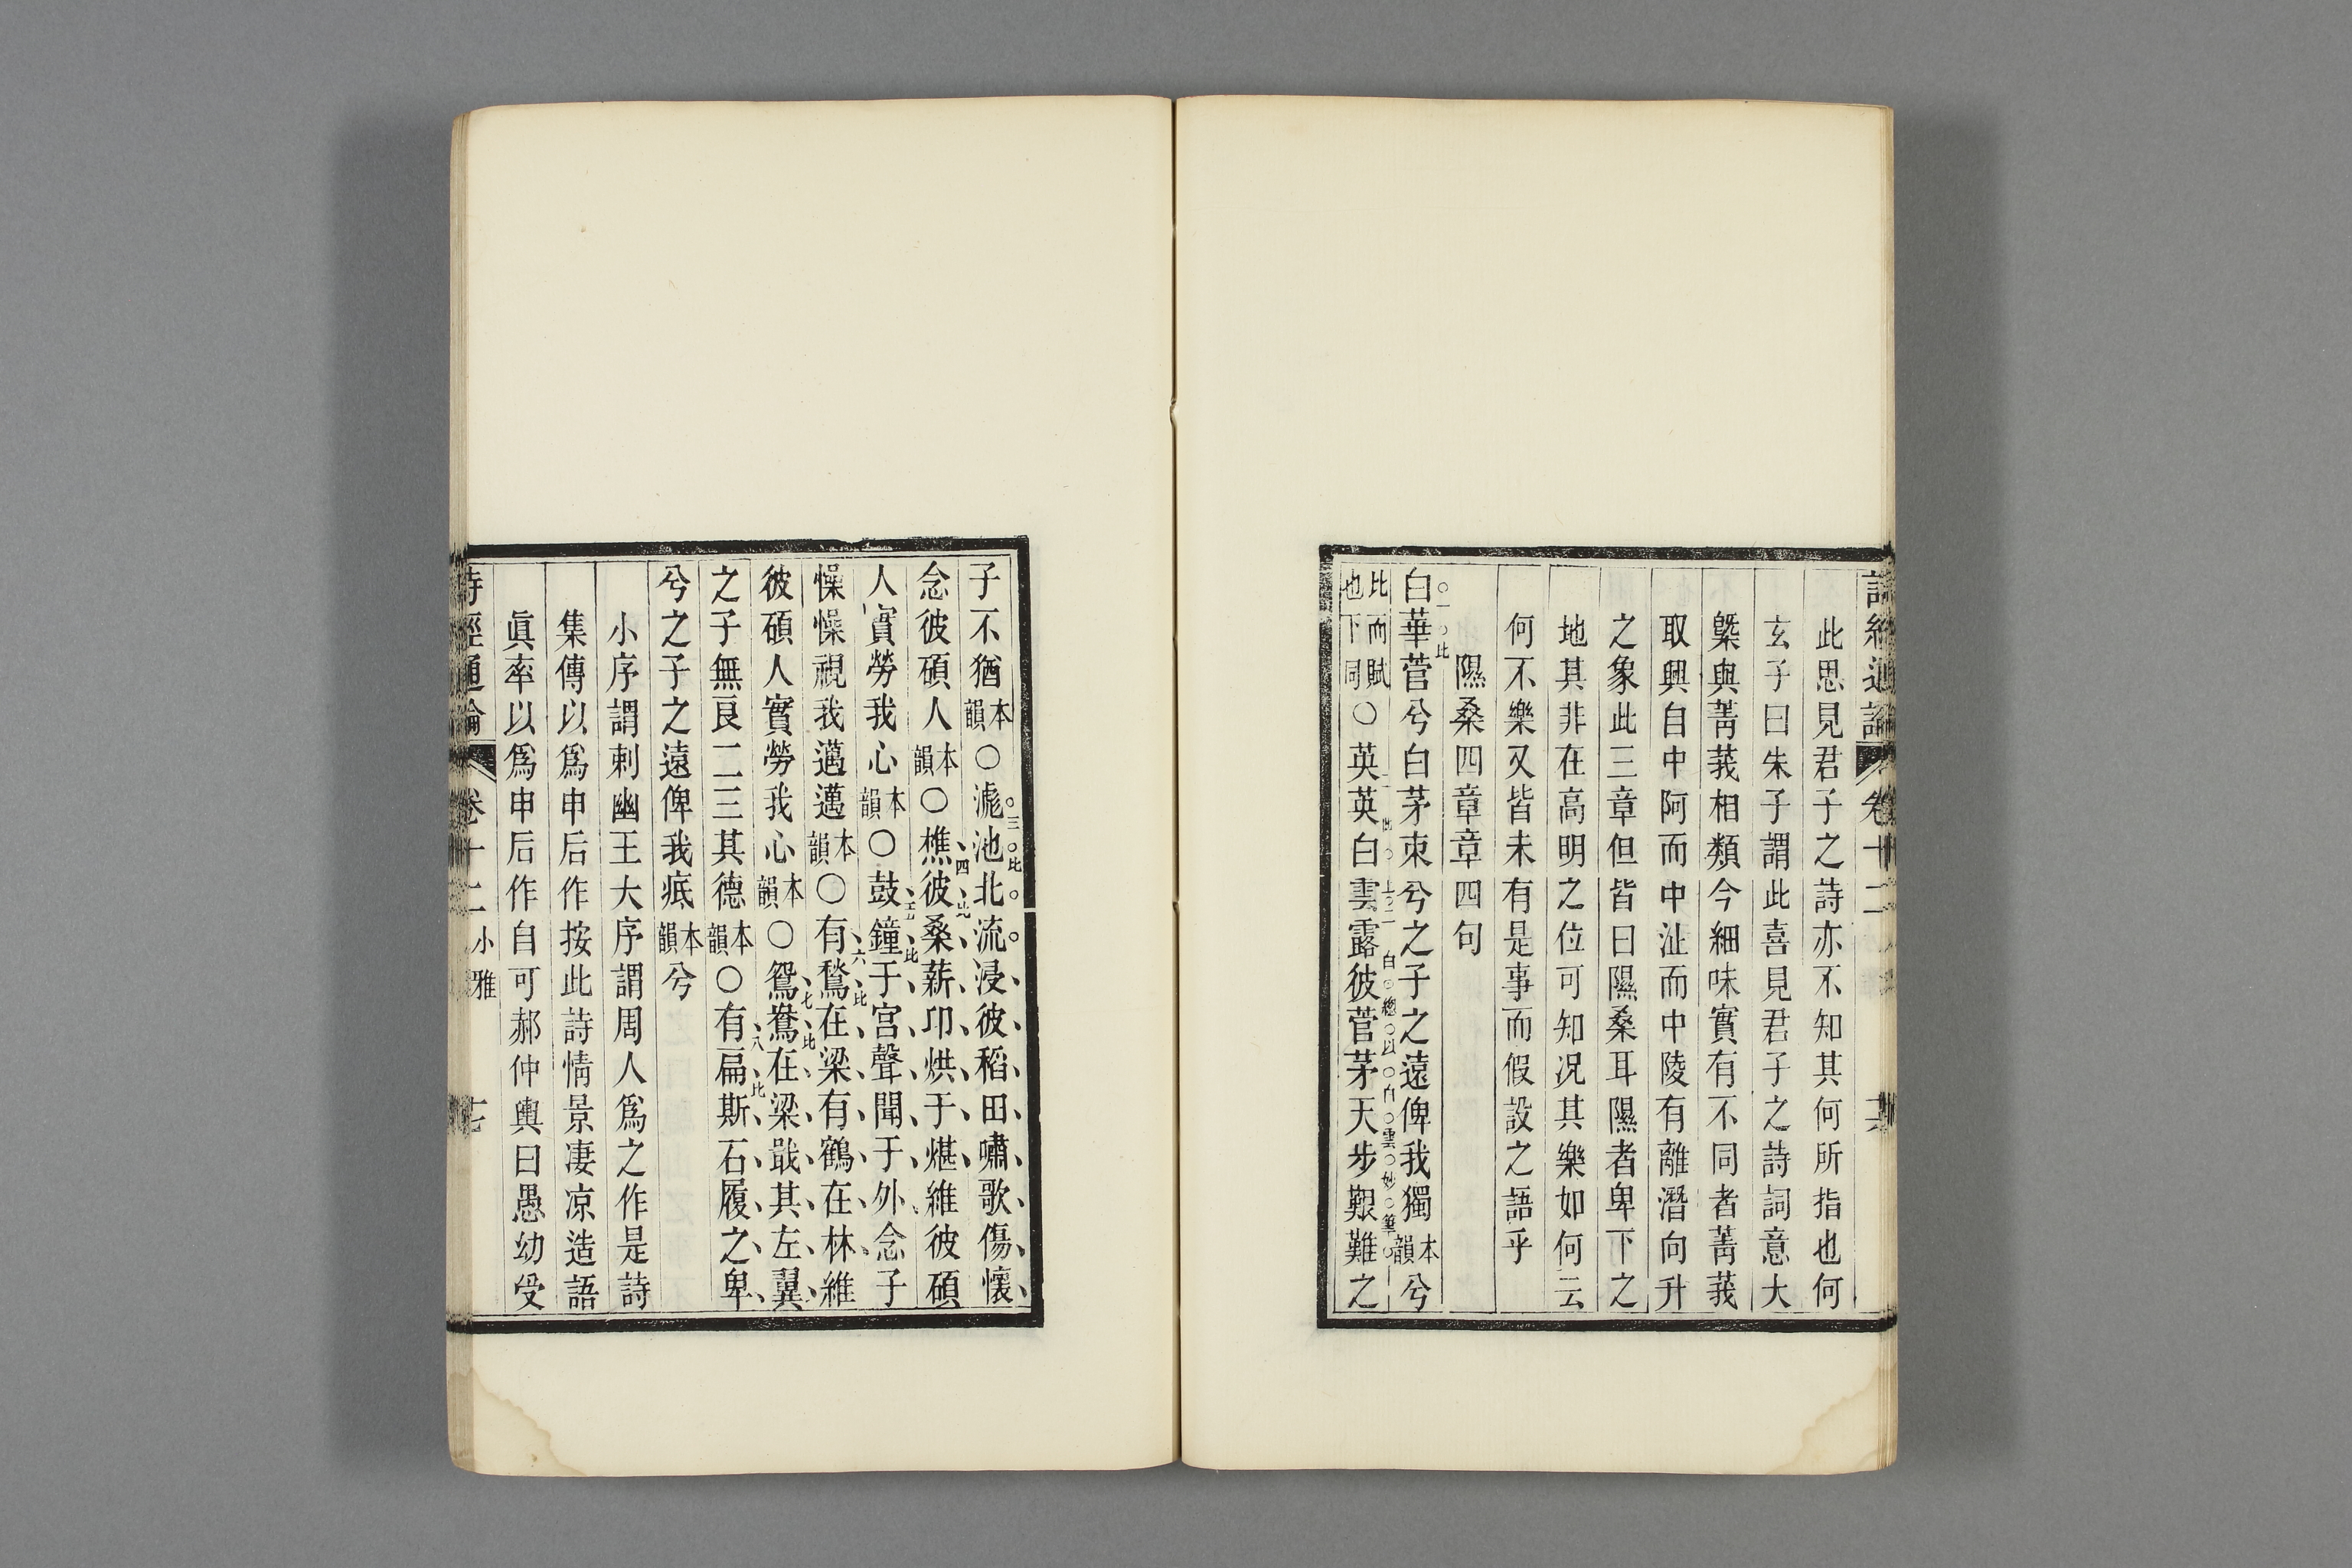 詩經通論 卷十二
此思見君子之詩亦不知其何所指也何
玄子曰朱子謂此喜見君子之詩詞意大
槩與菁莪相類今細味實有不同者菁莪
取興自中阿而中沚而中陵有離潛向升
之象此三章但皆曰隰桑耳隰者卑下之
地其非在高明之位可知況其樂如何云
何不樂又皆未有是事而假設之語乎
隰桑四章章四句
白華菅兮白茅束兮之子之遠俾我獨本韻兮
一比
比而賦也下同○英英白雲露彼菅茅天步艱難之
白總以白雲妙筆
子不猶本韻○滮池北流浸彼稻田嘯歌傷懷
三比
念彼碩人本韻○樵彼桑薪卬烘于煁維彼碩
四比
人實勞我心本韻○鼓鐘于宮聲聞于外念子
五比
懆懆視我邁邁本韻○有鶖在梁有鶴在林維
六比
彼碩人實勞我心本韻○鴛鴦在梁戢其左翼
七比
之子無良二三其德本韻○有扁斯石履之卑
八比
兮之子之遠俾我疷本韻兮
小序謂刺幽王大序謂周人爲之作是詩
集傳以爲申后作按此詩情景凄凉造語
眞率以爲申后作自可郝仲輿曰愚幼受
詩經通論 卷十二 小雅 十七